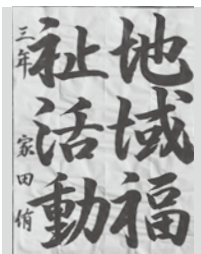 地域福
祉活動
三年 家田侑